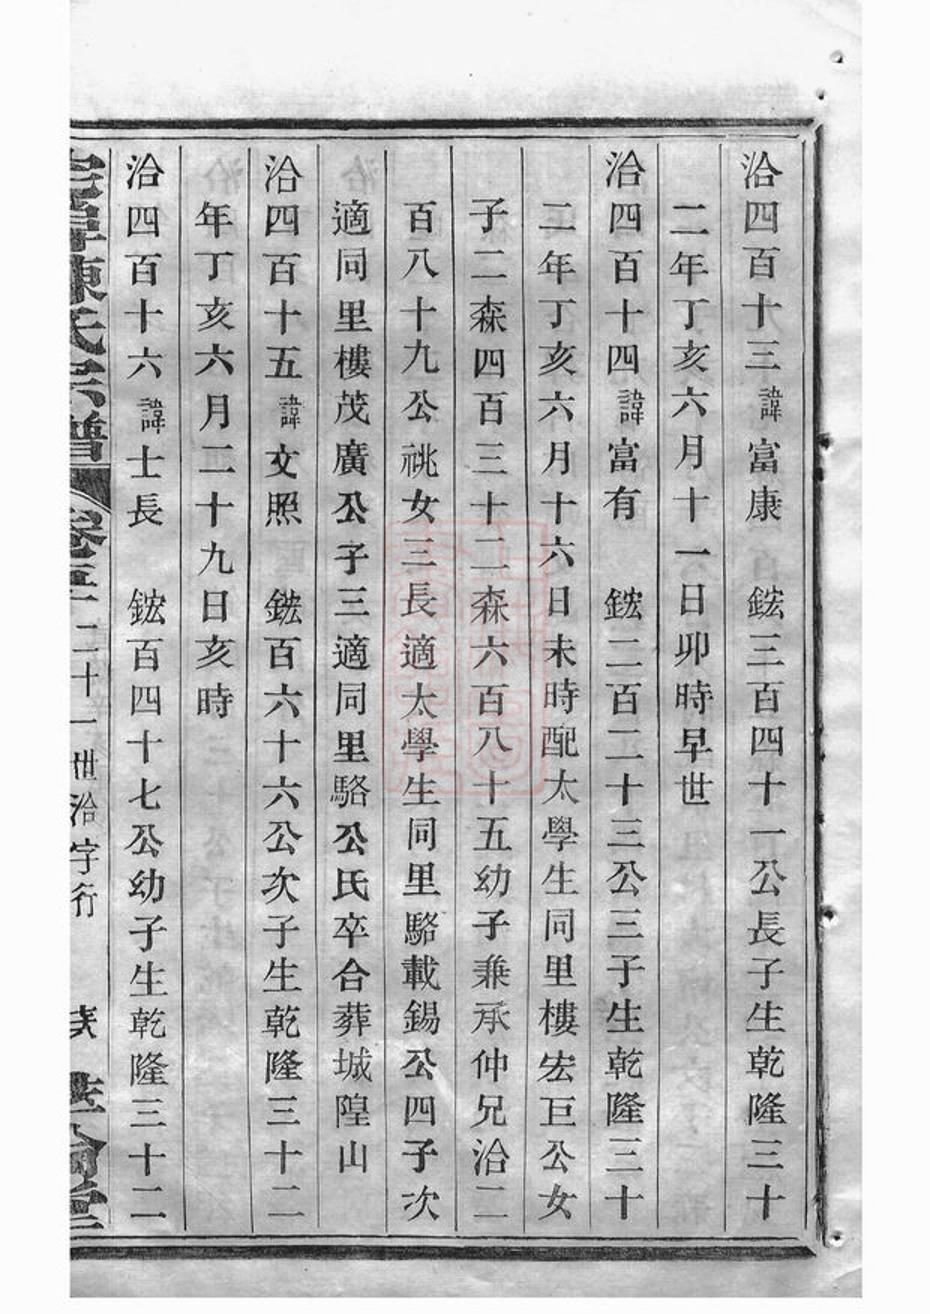 洽四百十三諱富康 鋐三百四十一公長子生乾隆三十
二年丁亥六月十一日卯時早世
洽四百十四諱富有 鋐二百二十三公三子生乾隆三十
二年丁亥六月十六日未時配太學生同里樓宏巨公女
子二森四百三十二森六百八十五幼子兼承仲兄洽二
百八十九公祧女三長適太學生同里駱載錫公四子次
適同里樓茂廣公子三適同里駱公氏卒合葬城隍山
洽四百十五諱文照 鋐百六十六公次子生乾隆三十二
年丁亥六月二十九日亥時
洽四百十六諱士長 鋐百四十七公幼子生乾隆三十二
宅埠陳氏宗譜 卷 二十一世洽字行